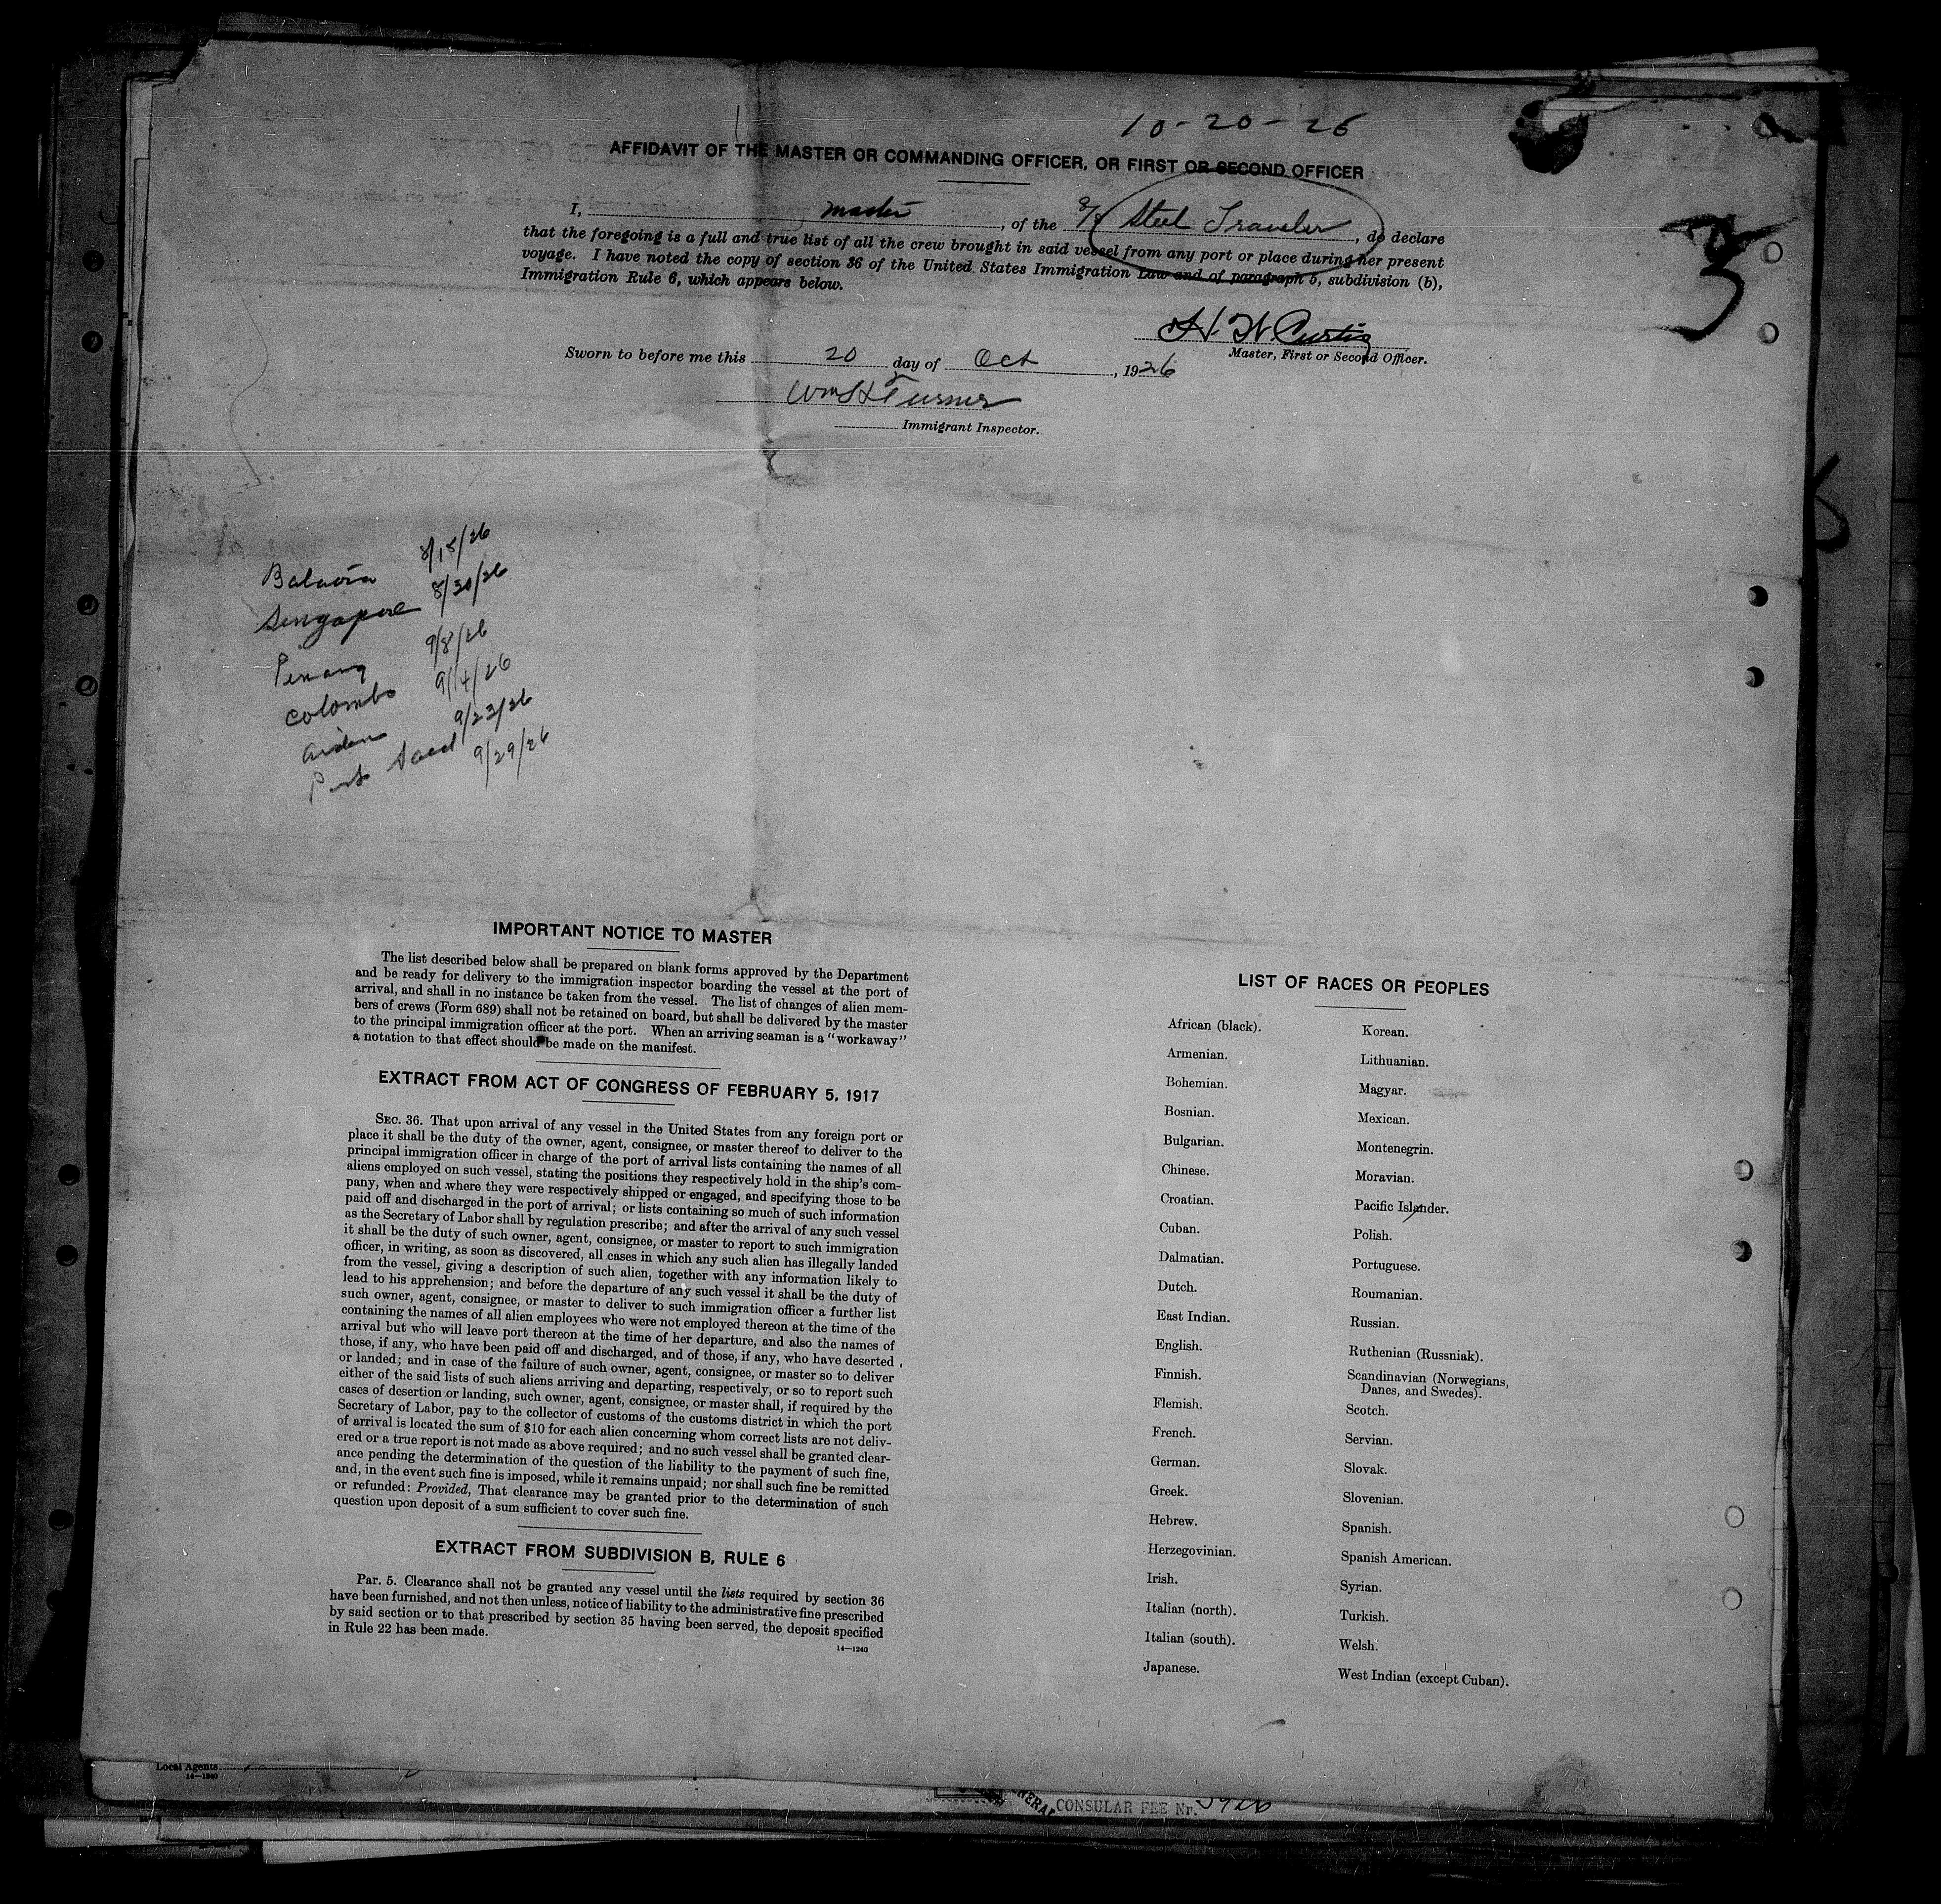 10-20-26
AFFIDAVIT OF THE MASTER OR COMMANDING OFFICER, OR FIRST OR SECOND OFFICER
I, master, of the S/S Steel Traveler, do declare
that the foregoing is a full and true list of all the crew brought in said vessel from any port or place during her present
voyage. I have noted the copy of section 36 of the United States Immigration Law and of paragraph 5, subdivision (b),
Immigration Rule 6, which appears below.
3
H. W. Curtis
Master, First or Second Officer.
Sworn to before me this 20 day of Oct, 1926
Wm H Turner
Immigrant Inspector.
Batavia 8/18/26
Singapore 8/30/26
Penang 9/8/26
Colombo 9/14/26
Aiden 9/23/26
Port Saed 9/29/26
IMPORTANT NOTICE TO MASTER
The list described below shall be prepared on blank forms approved by the Department
and be ready for delivery to the immigration inspector boarding the vessel at the port of
arrival, and shall in no instance be taken from the vessel. The list of changes of alien mem-
bers of crews (Form 689) shall not be retained on board, but shall be delivered by the master
to the principal immigration officer at the port. When an arriving seaman is a "workaway"
a notation to that effect should be made on the manifest.
EXTRACT FROM ACT OF CONGRESS OF FEBRUARY 5, 1917
SEC. 36. That upon arrival of any vessel in the United States from any foreign port or
place it shall be the duty of the owner, agent, consignee, or master thereof to deliver to the
principal immigration officer in charge of the port of arrival lists containing the names of all
aliens employed on such vessel, stating the positions they respectively hold in the ship's com-
pany, when and where they were respectively shipped or engaged, and specifying those to be
paid off and discharged in the port of arrival; or lists containing so much of such information
as the Secretary of Labor shall by regulation prescribe; and after the arrival of any such vessel
it shall be the duty of such owner, agent, consignee, or master to report to such immigration
officer, in writing, as soon as discovered, all cases in which any such alien has illegally landed
from the vessel, giving a description of such alien, together with any information likely to
lead to his apprehension; and before the departure of any such vessel it shall be the duty of
such owner, agent, consignee, or master to deliver to such immigration officer a further list
containing the names of all alien employees who were not employed thereon at the time of the
arrival but who will leave port thereon at the time of her departure, and also the names of
those, if any, who have been paid off and discharged, and of those, if any, who have deserted
or landed; and in case of the failure of such owner, agent, consignee, or master so to deliver
either of the said lists of such aliens arriving and departing, respectively, or so to report such
cases of desertion or landing, such owner, agent, consignee, or master shall, if required by the
Secretary of Labor, pay to the collector of customs of the customs district in which the port
of arrival is located the sum of $10 for each alien concerning whom correct lists are not deliv-
ered or a true report is not made as above required; and no such vessel shall be granted clear-
ance pending the determination of the question of the liability to the payment of such fine,
and, in the event such fine is imposed, while it remains unpaid; nor shall such fine be remitted
or refunded: Provided, That clearance may be granted prior to the determination of such
question upon deposit of a sum sufficient to cover such fine.
EXTRACT FROM SUBDIVISION B, RULE 6
Par. 5. Clearance shall not be granted any vessel until the lists required by section 36
have been furnished, and not then unless, notice of liability to the administrative fine prescribed
by said section or to that prescribed by section 35 having been served, the deposit specified
in Rule 22 has been made.
14—1240
LIST OF RACES OR PEOPLES
African (black).
Armenian.
Bohemian.
Bosnian.
Bulgarian.
Chinese.
Croatian.
Cuban.
Dalmatian.
Dutch.
East Indian.
English.
Finnish.
Flemish.
French.
German.
Greek.
Hebrew.
Herzegovinian.
Irish.
Italian (north).
Italian (south).
Japanese.
Korean.
Lithuanian.
Magyar.
Mexican.
Montenegrin.
Moravian.
Pacific Islander.
Polish.
Portuguese.
Roumanian.
Russian.
Ruthenian (Russniak).
Scandinavian (Norwegians,
Danes, and Swedes).
Scotch.
Servian.
Slovak.
Slovenian.
Spanish.
Spanish American.
Syrian.
Turkish.
Welsh.
West Indian (except Cuban).
Local Agents
14—1240
CONSULAR FEE Nr.